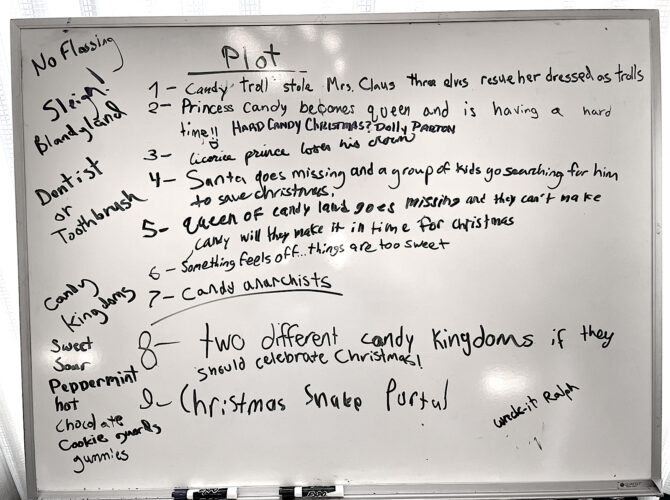 No Flossing
Sleigh!
Blandyland
Dentist
or
Toothbrush
Candy
Kingdoms
Sweet
Sour
Peppermint
hot
Chocolate
Cookie guards
gummies
Plot
1- Candy troll stole Mrs. Claus three elves resue her dressed as trolls
2- Princess Candy becomes queen and is having a hard
time!! HARD CANDY CHRISTMAS? Dolly PARTON
3- licorice prince loses his crown
4- Santa goes missing and a group of kids go searching for him
to save christmas.
5- Queen of candy land goes missing and they can't make
candy will they make it in time for christmas
6- Something feels off... things are too sweet
7- Candy anarchists
8- two different candy kingdoms if they
should celebrate Christmas!
9- Christmas Snake Portal
wreck-it Ralph